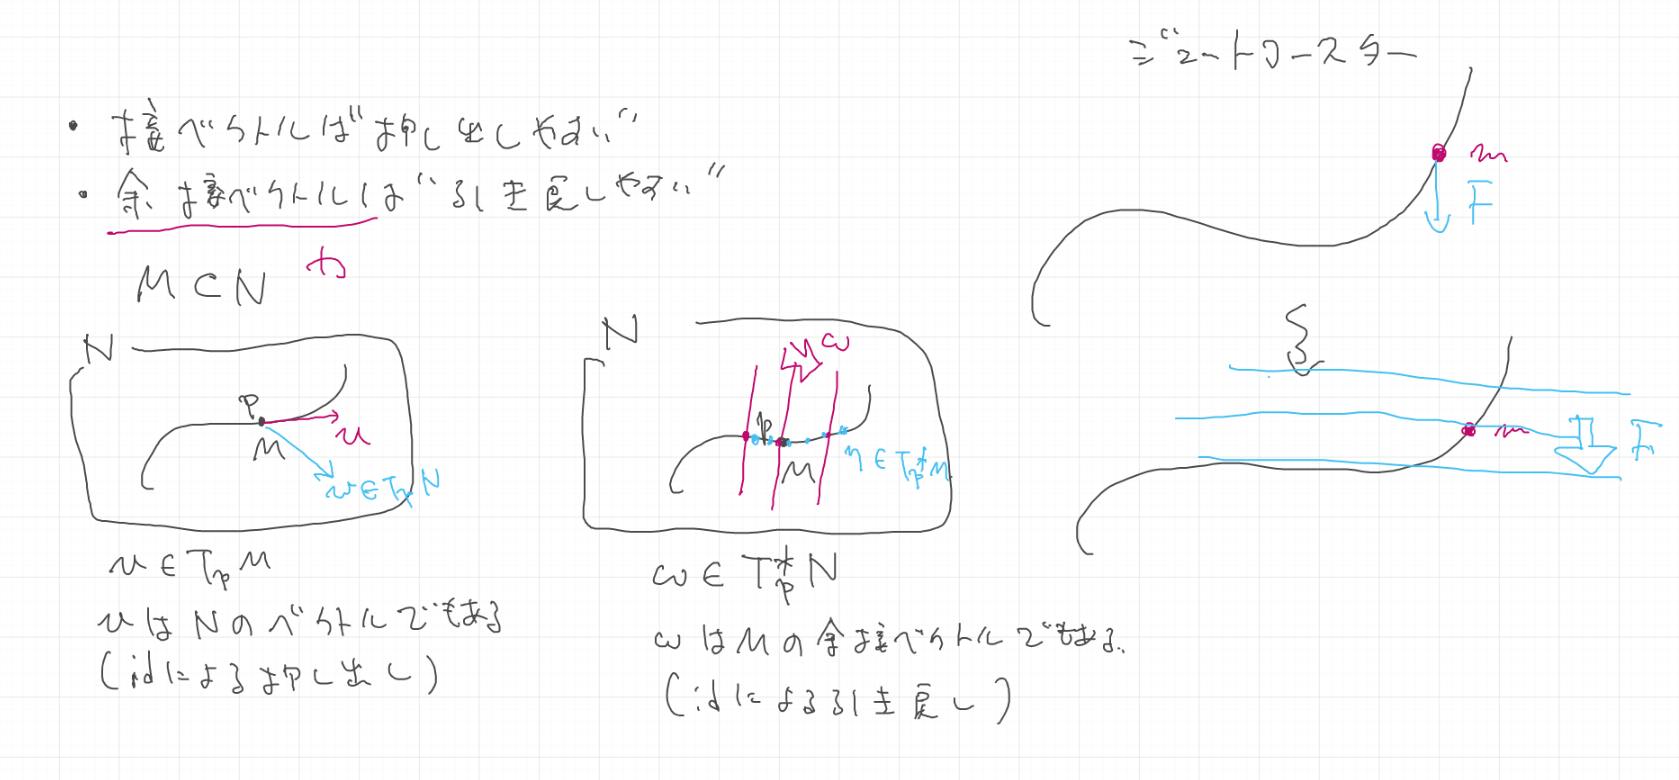 ・接ベクトルは“押し出しやすい”
・余接ベクトルは“引き戻しやすい”
力
M⊂N
N
P
M
v
w∈TpN
v∈TpM
vはNのベクトルでもある
(idによる押し出し)
N
ω
p
M
η∈Tp*M
ω∈Tp*N
ωはMの余接ベクトルでもある.
(idによる引き戻し)
ジェットコースター
m
F
m
F